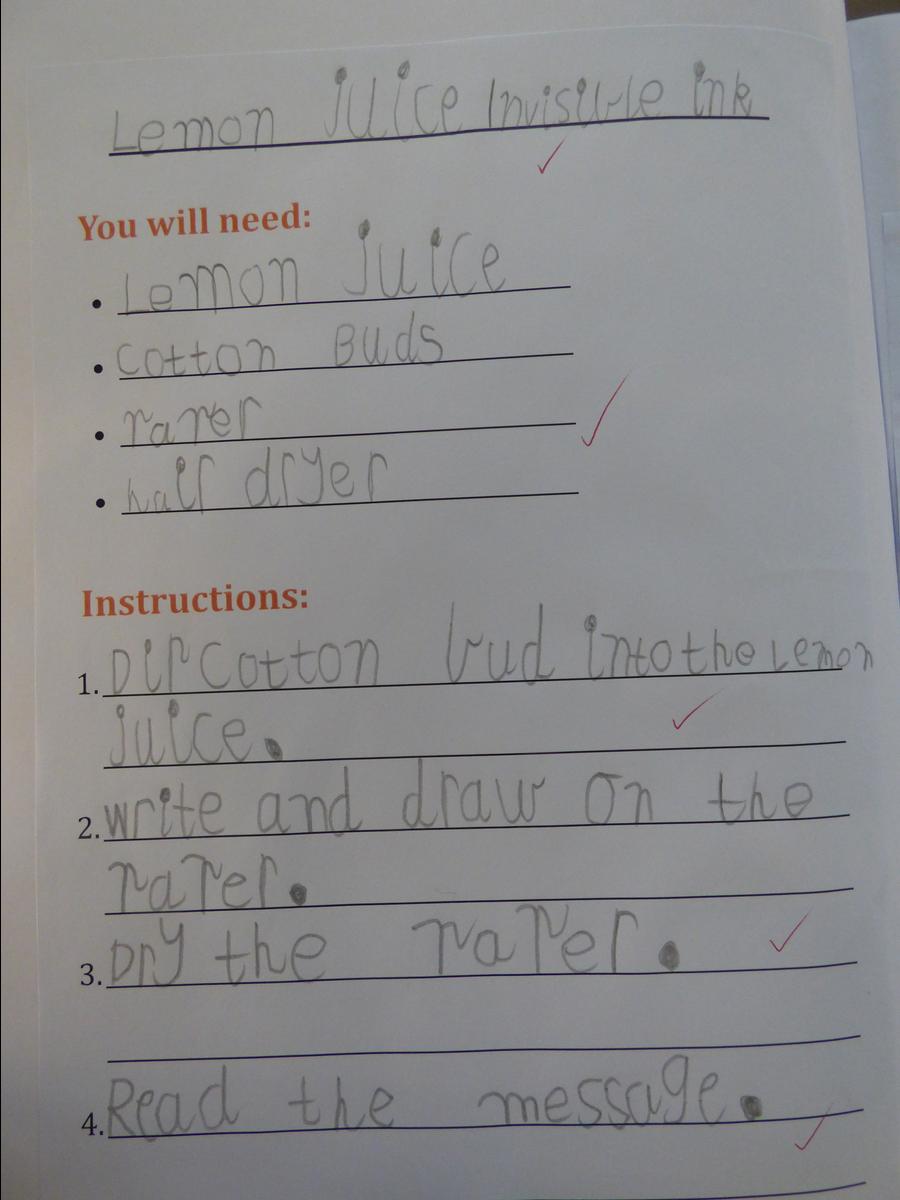 Lemon juice Invisible ink
You will need:
• Lemon juice
• cotton Buds
• paper
• hair dryer
Instructions:
1. Dip cotton bud into the Lemon
juice.
2. write and draw on the
paper.
3. Dry the paper.
4. Read the message.